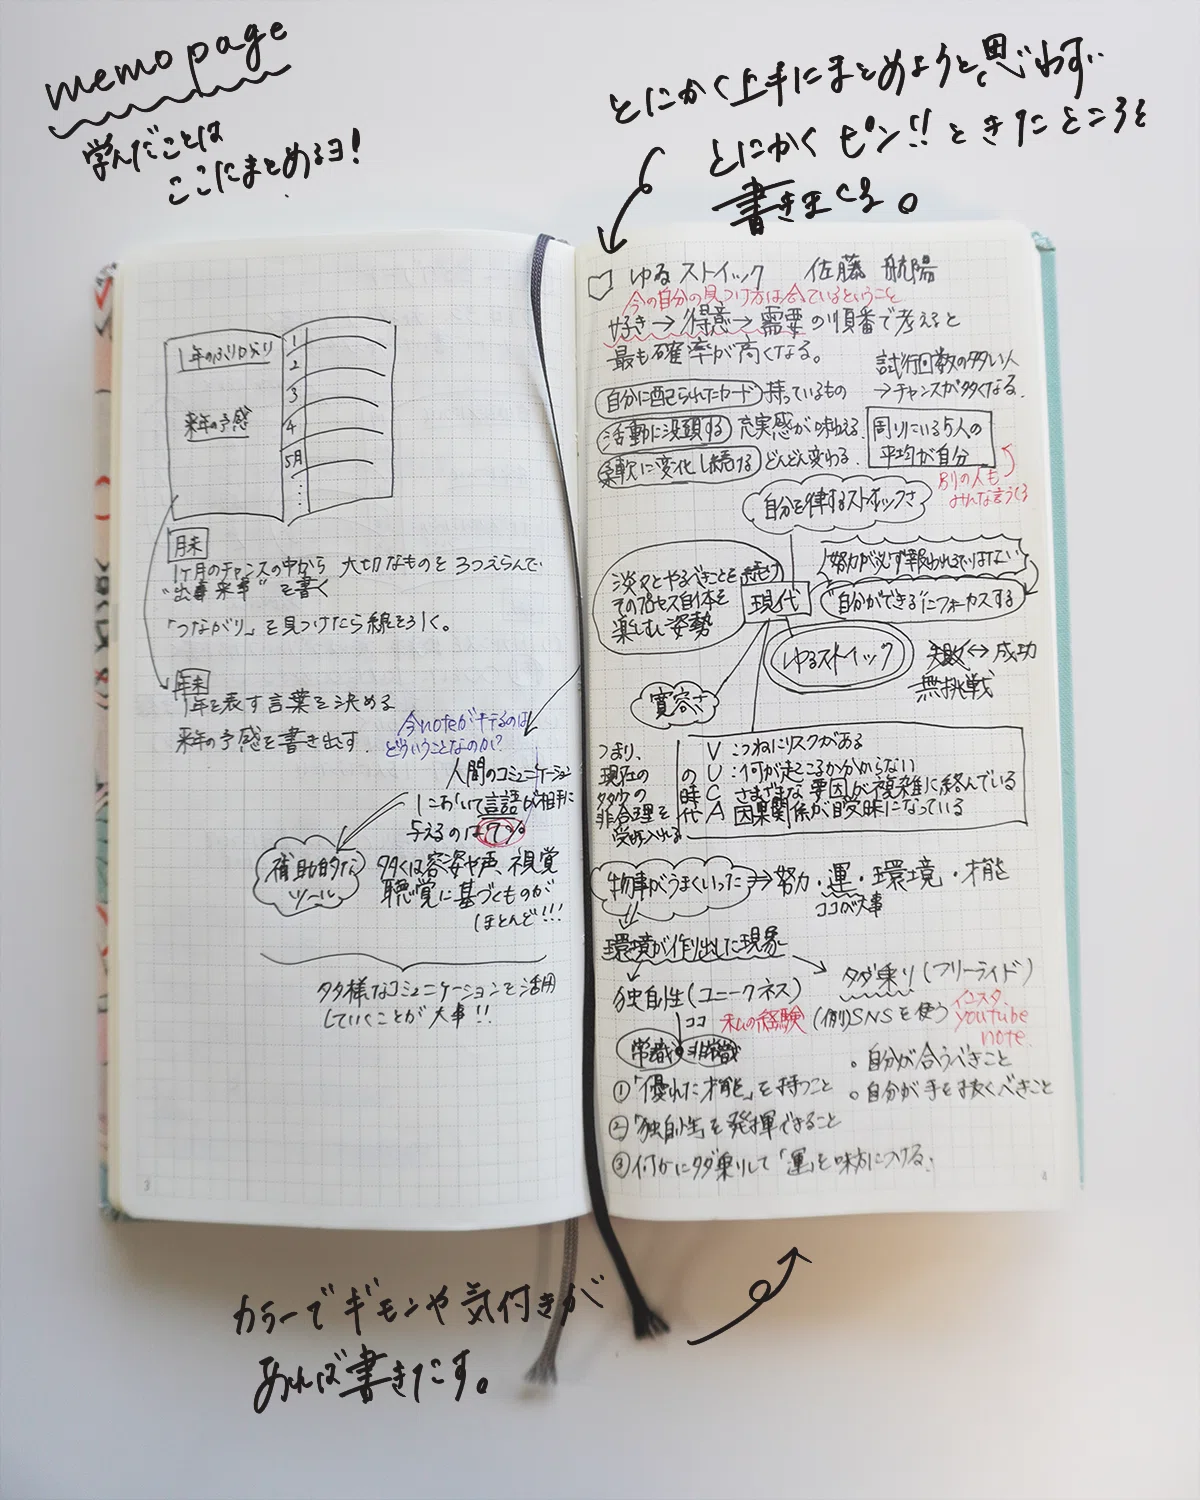 memo page
学んだことは
ここにまとめるヨ!
とにかく上手にまとめようと思わず
とにかくピン!!ときたところを
書きまくる。
1年のふりかえり
来年の予感
1
2
3
4
5月
月末
1ヶ月のチャンスの中から 大切なものを3つえらんで
"出来事" を書く
「つながり」を見つけたら線を引く。
年末
1年を表す言葉を決める
来年の予感を書き出す.
今noteがキテるのは
どういうことなのか?
人間のコミュニケーション
において言語が相手に
与えるのは7%
補助的な
ツール
多くは容姿や声、視覚
聴覚に基づくものが
ほとんど!!!
多様なコミュニケーションを活用
していくことが大事!!
3
ゆるストイック 佐藤 航陽
今の自分の見つけ方は合っているということ
好き→得意→需要の順番で考えると
最も確率が高くなる。
試行回数の多い人
→チャンスが多くなる.
自分に配られたカード 持っているもの
活動に没頭する 充実感が味わえる.
柔軟に変化し続ける どんどん変わる.
周りにいる5人の
平均が自分
別の人も
みんな言うてる
自分を律するストイックさ
淡々とやるべきことを続け
そのプロセス自体を
楽しむ姿勢
現代
努力が必ず報われるではない
"自分ができる"にフォーカスする
ゆるストイック
失敗↔成功
無挑戦
寛容さ
つまり、
現在の
非合理を
受け入れる
の時代
V:つねにリスクがある
U:何が起こるか分からない
C さまざまな要因が複雑に絡んでいる
A 因果関係が曖昧になっている
物事がうまくいった⇒努力・運・環境・才能
ココが大事
環境が作り出した現象
独自性(ユニークネス)
タダ乗り(フリーライド)
ココ
私の経験
(例)SNSを使う
インスタ、
youtube
note.
常識 非常識
。自分が合うべきこと
。自分が手を抜くべきこと
①「優れた才能」を持つこと
②「独自性」を発揮できること
③何かにタダ乗りして「運」を味方につける.
4
カラーでギモンや気付きが
あれば書きたす。